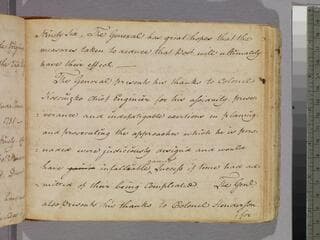 Ninety Six, The General has great hopes that the
measures taken to reduce that Post will ultimately
have their effect —
The General presents his thanks to Colonel
Koscuisko chief Engineer for his assiduity, perse-
verance and indefatigable exertions in planning
and prosecuting the approaches which he is per-
suaded were judiciously designd and would
have gained infallable Success if time had ad-
mitted of their being Compleated. The Genl
also presents his thanks to Colonel Henderson